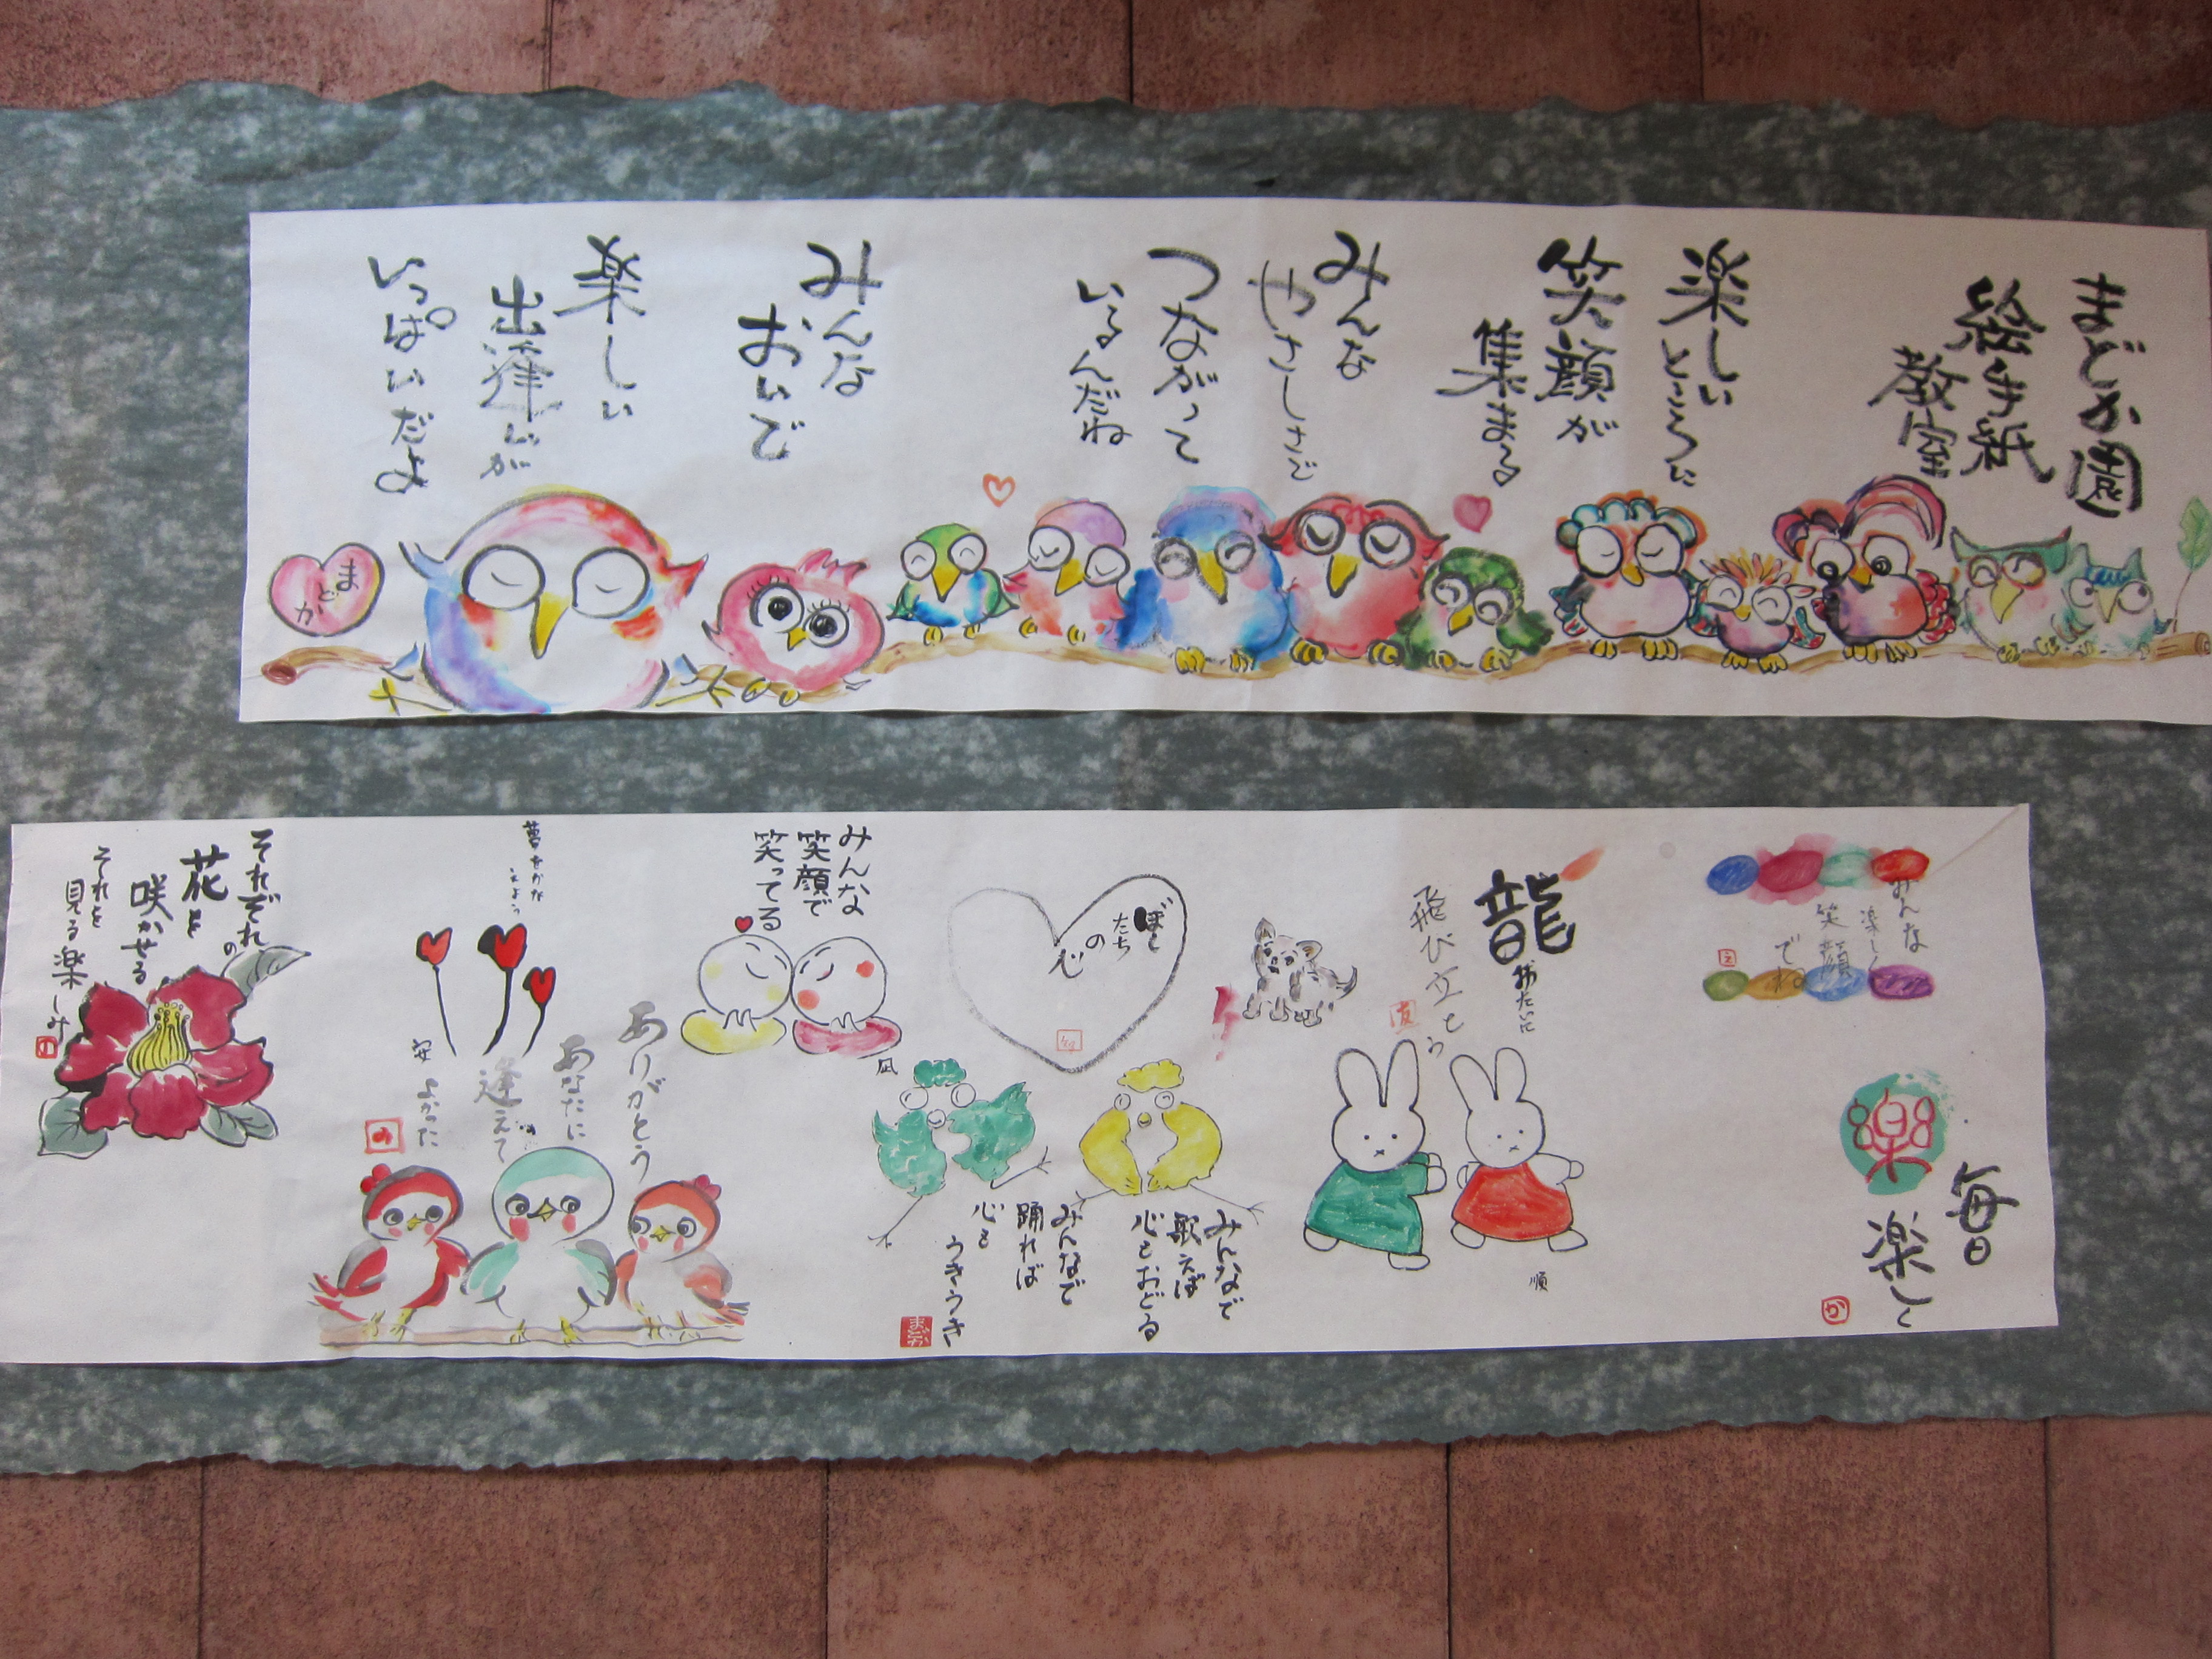 まどか園
絵手紙
教室
楽しいところに
笑顔が
集まる
みんな
やさしさで
つながって
いるんだね
みんな
おいで
楽しい
出逢いが
いっぱいだよ
まどか
みんな
楽しく
笑顔
でね
毎日
楽しく
か
楽
龍
みたいに
飛び立とう
順
ぼくたちの
心
みんなで
歌えば
心もおどる
みんなで
踊れば
心も
うきうき
まどか
みんな
笑顔で
笑ってる
凪
夢をかな
えよう
ありがとう
あなたに
逢えて
よかった
安
それぞれの
花を
咲かせる
それを
見る楽しみ